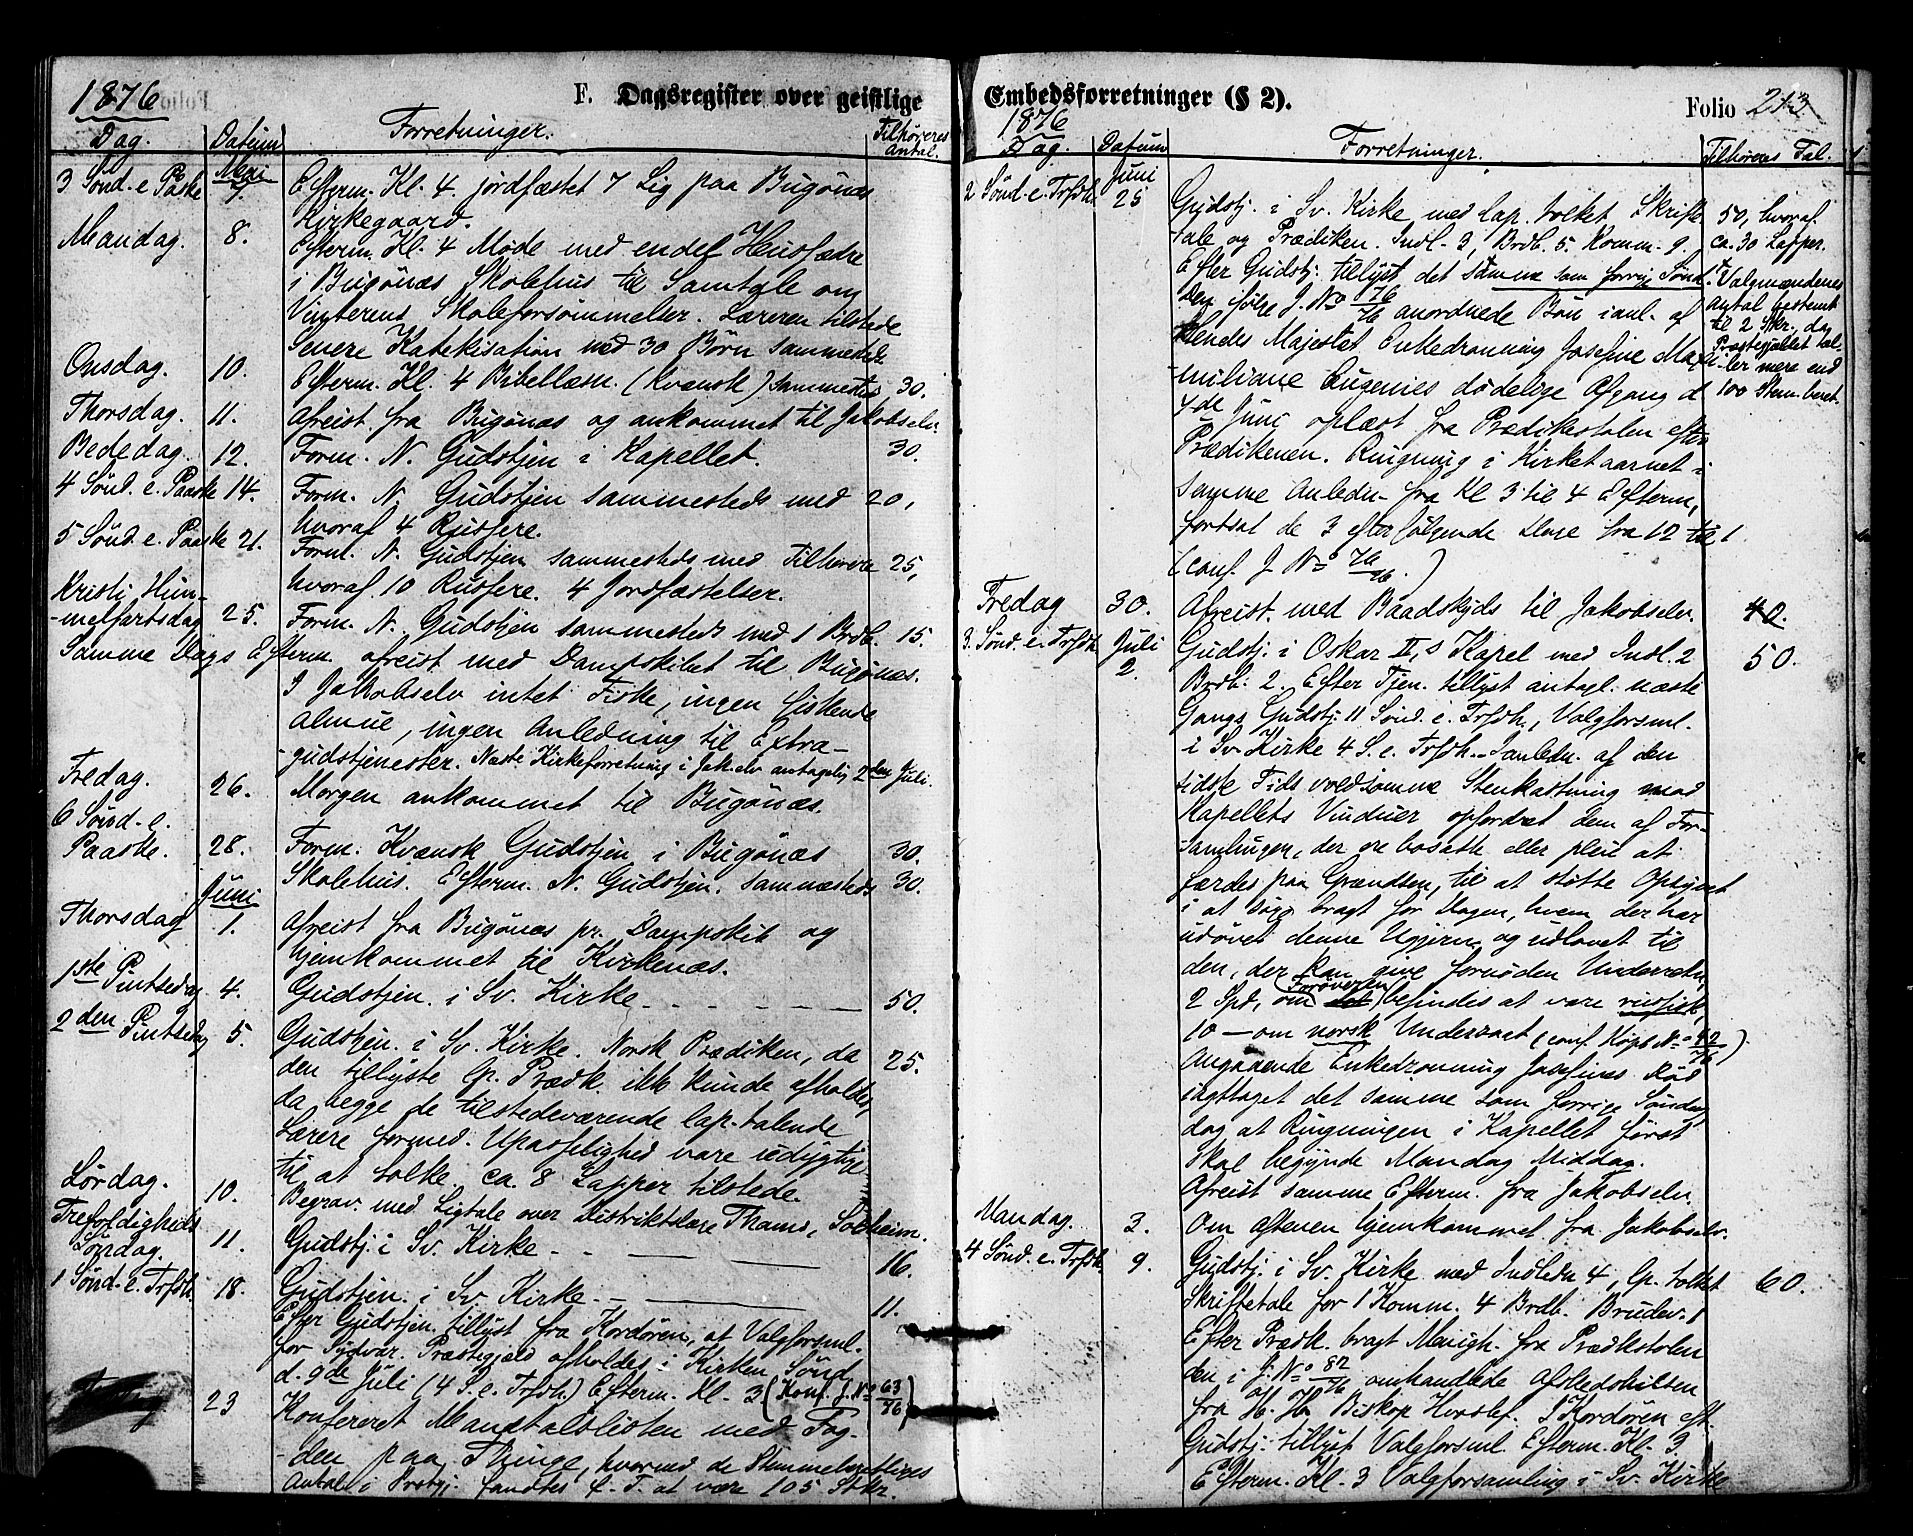 1876
F. Dagsregister over geistlige
Dag. Datum Forretninger. Tilhøreres Antal.
Mai
3 Sønd. e. Paaske 7. Efterm. Kl. 4 jordfæstet 7 Lig paa Bugønæs
Kirkegaard.
Mandag. 8. Efterm. Kl. 4 Møde med endel Husfædre
i Bugønæs Skolehus til Samtale om
Vinterens Skoleforsømmelser. Læreren tilstede
Senere Katekisation med 30 Børn sammesteds
Onsdag. 10. Efterm. Kl. 4 Bibellæsn. (kvænsk) sammesteds 30.
Thorsdag. 11. Afreist fra Bugønæs og ankommet til Jakobselv
Bededag. 12. Form. N. Gudstjen i Kapellet. 30.
4 Sønd. e. Paaske 14. Form. N. Gudstjen sammesteds med 20,
hvoraf 4 Russere.
5 Sønd. e. Paaske 21. Form. N. Gudstjen sammesteds med Tilhørere 25,
hvoraf 10 Russere. 4 Jordfæstelser.
Kristi Him-
-melfartsdag 25. Form. N. Gudstjen sammesteds med 1 Brdb. 15.
Samme Dags Efterm. afreist med Dampskibet til Bugønæs.
I Jakobselv intet Fiske, ingen fiskende
Almue, ingen Anledning til Extra-
-gudstjenester. Næste Kirkeforretning i Jak.elv antagelig 2den Juli.
Fredag. 26. Morgen ankommet til Bugønæs.
6 Sønd. e.
Paaske. 28. Form. Kvænsk Gudstjen i Bugønæs 30.
Skolehus. Efterm. N. Gudstjen. sammesteds 30.
Juni
Thorsdag 1. Afreist fra Bugønæs pr. Dampskib og
hjemkommet til Kirkenæs.
1ste Pintsedag 4. Gudstjen. i Sv. Kirke - - - 50.
2den Pintsedag 5. Gudstjen. i Sv. Kirke. Norsk Prædiken, da 25.
den tillyste lp. Prædk. ikke kunde afholdes,
da begge de tilstedeværende lap. talende
Lærere formed. Upasselighed vare udygtige
til at tolke. ca. 8 Lapper tilstede.
Lørdag. 10. Begrav. med Ligtale over Distriktslæge Thams, Solheim.
Trefoldigheds
Søndag. 11. Gudstj. i Sv. Kirke - - 16.
1 Sønd. e. Trfdh. 18. Gudstjen. i Sv. Kirke - 11.
Efter Gudstjen. tillyst fra Kordøren, at Valgforsml.
for Sydvar. Præstegjeld afholdes i Kirken Sønd.
d. 9de Juli (4 S. e. Trfdh.) Efterm. Kl. 3 (Konf. J. No 63/76)
23 Konfereret Mandtalslisten med Fog-
-den paa Thinge, hvorved de Stemmeberettiges
Antal i Prstgj. fandtes f. T. at være 105 Stkr.
Embedsforretninger (§ 2). Folio 213
1876
Dag. Datum Forretninger. Tilhøreres Tal.
Juni
2 Sønd. e. Trfdh. 25 Gudstj. i Sv. Kirke med lap. tolket Skrifte- 50, hvoraf
-tale og Prædiken. Indl. 3, Brdb. 5 Komm. 9. ca. 30 Lapper.
Efter Gudstj. tillyst det samme som forrige Sønd.
Valgmændenes
Den følge J. No 76/76 anordnede Bøn i anl. af Antal bestemt
til 2 Stkr., da
Hendes Majestæt Enkedronning Josefine Maxi- Præstegjeldet tæl-
-ler mere end
-miliane Eugenies dødelige Afgang d 100 Stem. beret.
7de Juni oplæst fra Prædikestolen efter
Prædikenen. Ringning i Kirketaarnet i
samme Anledn. fra Kl 3 til 4 Efterm,
fortsat de 3 efterfølgende Dage fra 12 til 1
(conf. J No 76/76.)
Fredag 30. Afreist med Baadskyds til Jakobselv. 40.
Juli
3. Sønd. e. Trfdh. 2. Gudstj. i Oskar II,s Kapel med Indl. 2 50.
Brdb. 2. Efter Tjen. tillyst antagl. næste
Gangs Gudstj. 11 Sønd. e. Trfdh., Valgforsml.
i Sv. Kirke 4 S. e. Trfdh. I anledn. af den
sidste Tids voldsomme Stenkastning mod
Kapellets Vinduer opfordret dem af For-
samlingen, der ere bosatte eller pleie at
færdes paa Grændsen, til at støtte Opsynet
i at søge bragt for Dagen, hvem der har
udøvet denne Ugjern. og udlovet til
den, der kan give fornøden Underretn.
2 Spd, om Forøveren befindes at være russisk,
10 - om norsk Undersaat (conf. Kopb. No 42/76)
Angaaende Enkedronning Josefines Død
iagttaget det samme som forrige Søndag
dog at Ringningen i Kapellet først
skal begynde Mandag Middag.
Afreist samme Efterm. fra Jakobselv.
Mandag. 3. Om aftenen hjemkommet fra Jakobselv.
4 Sønd. e. Trfdh. 9. Gudstj. i Sv. Kirke med Indledn 4, lp. tolket 60.
Skriftetale for 1 Komm. 4 Brdb. Brudev. 1
Efter Prædk. bragt Menigh. fra Prædkstolen
den i J. No 82/76 omhandlede Afskedshilsen
fra H. Hr. Biskop Hvoslef. I Kordøren eft.
Gudstj. tillyst Valgforsml. Efterm. Kl. 3.
Efterm. Kl. 3 Valgforsamling i Sv. Kirke